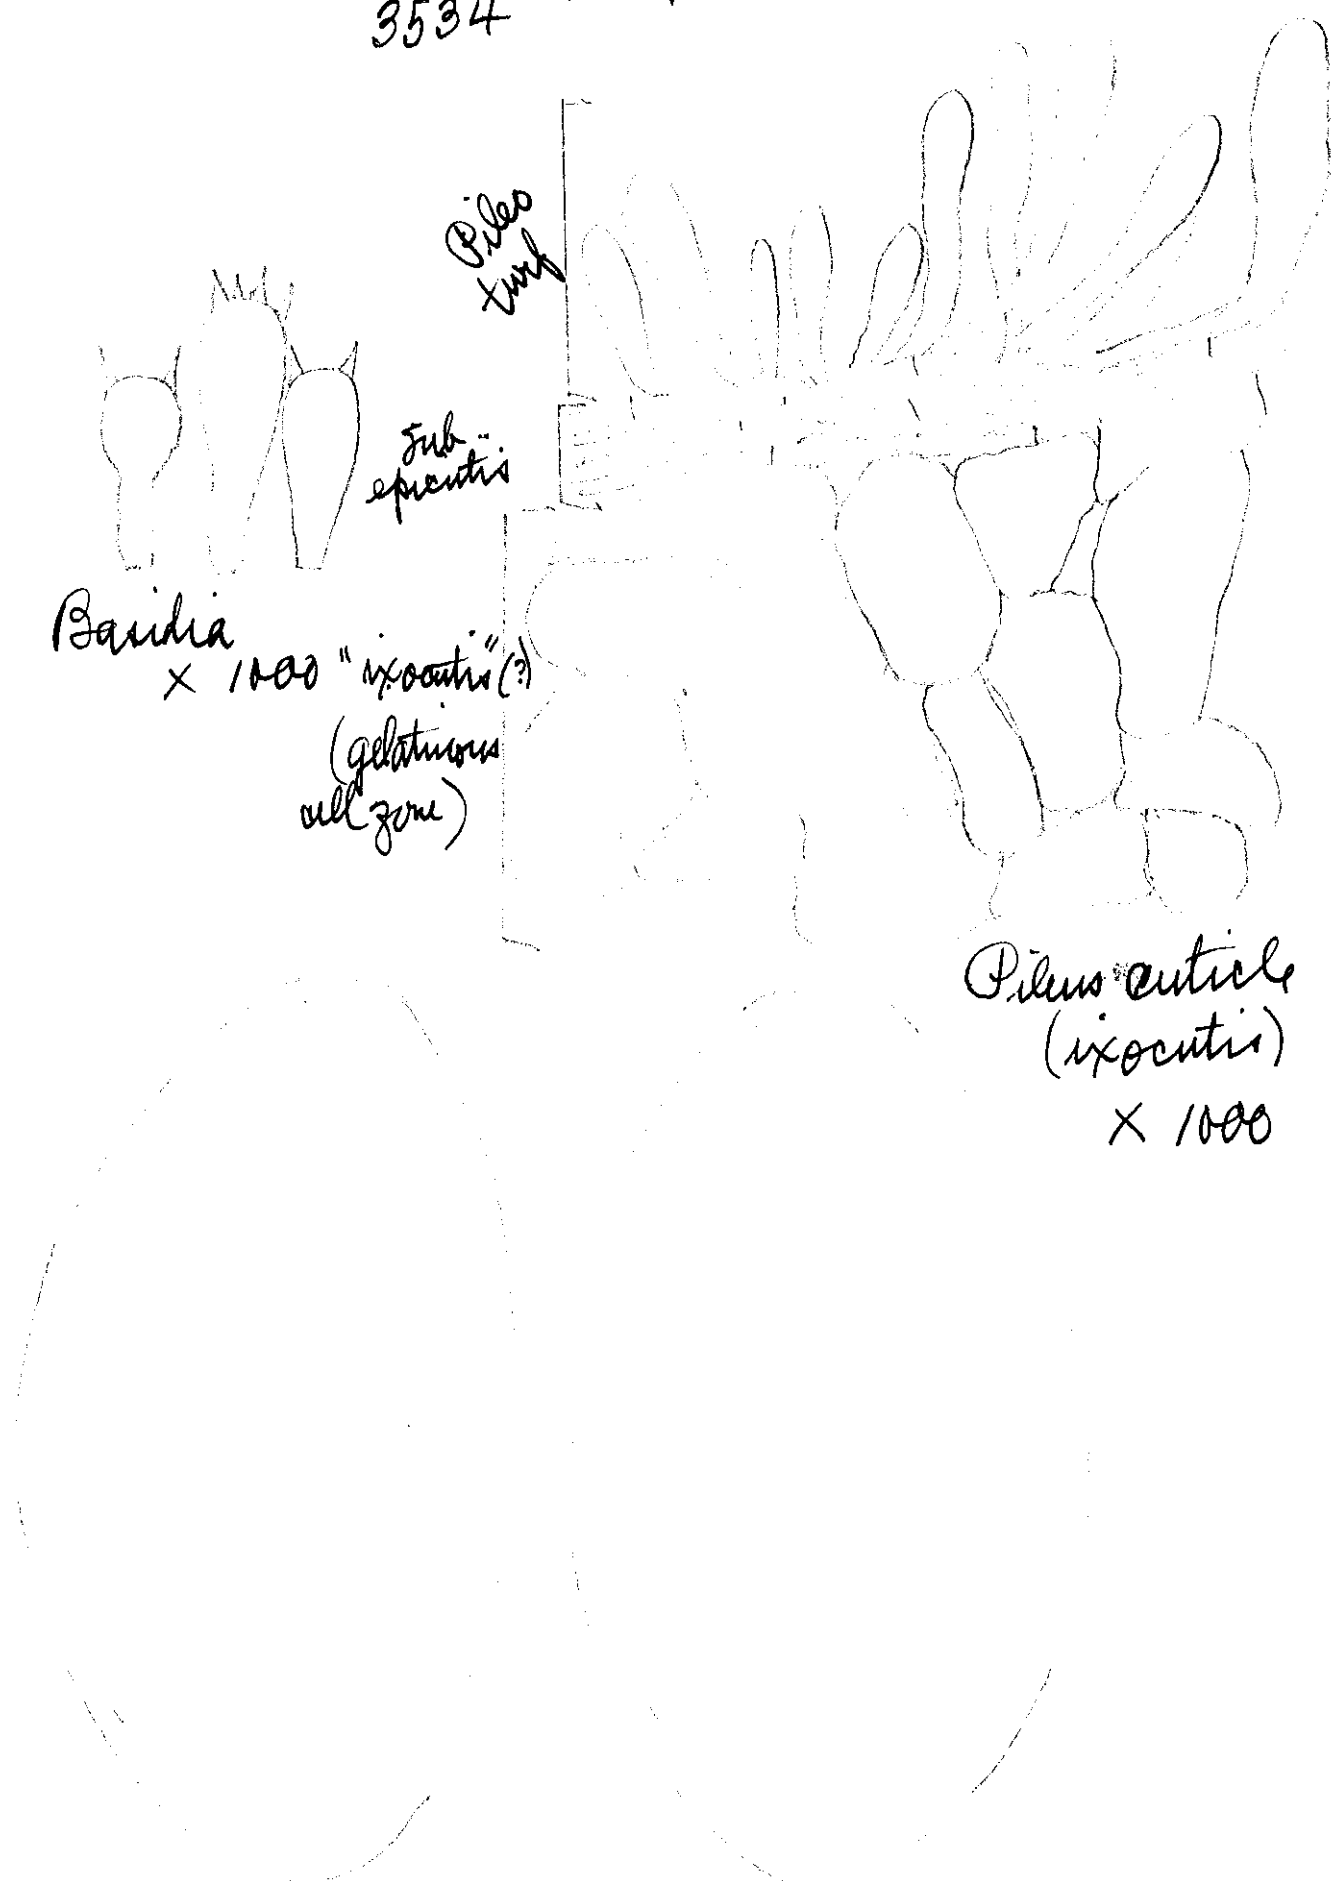 3534
Pileo
turf
Sub..
epicutis
Basidia
× 1000
"ixocutis" (?)
(gelatinous
cell zone)
Pileus cuticle
(ixocutis)
× 1000